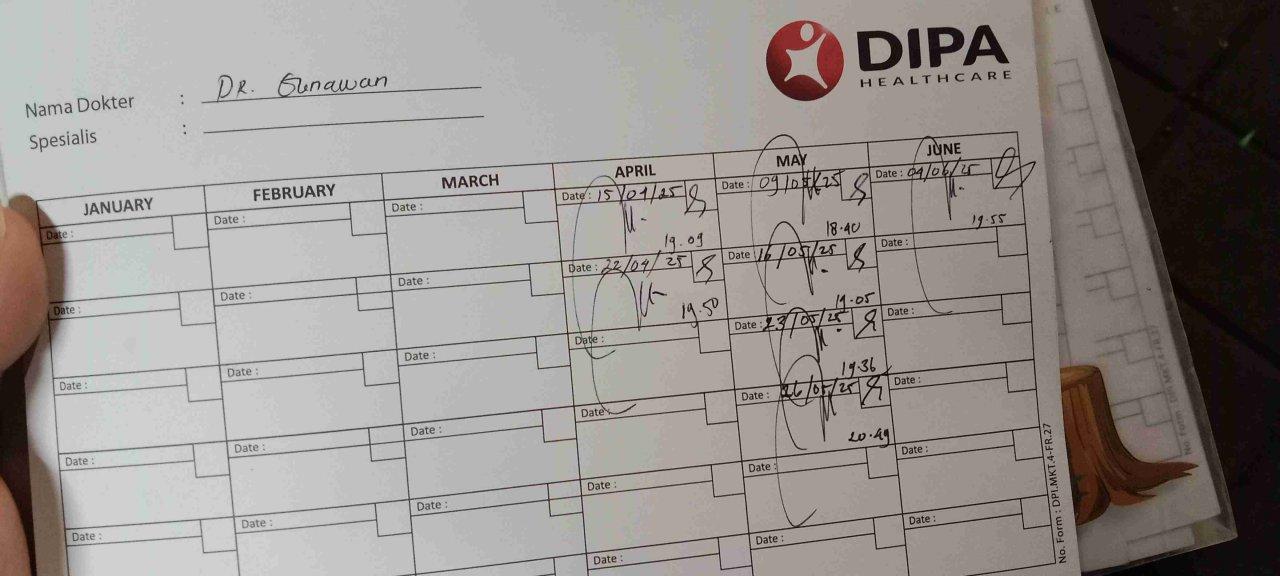 DIPA
HEALTHCARE
Nama Dokter : DR. Gunawan
Spesialis :
JANUARY FEBRUARY MARCH APRIL MAY JUNE
Date : Date : Date : Date : 15/04/25 Date : 09/05/25 Date : 04/06/25
19.09 18.40 19.55
Date : Date : Date : Date : 22/04/25 Date : 16/05/25 Date :
19.50 19.05
Date : Date : Date : Date : Date : 23/05/25 Date :
19.36
Date : Date : Date : Date : Date : 26/05/25 Date :
20.49
Date : Date : Date : Date : Date : Date :
Date : Date : Date :
No. Form : DPI.MKT.4-FR.27